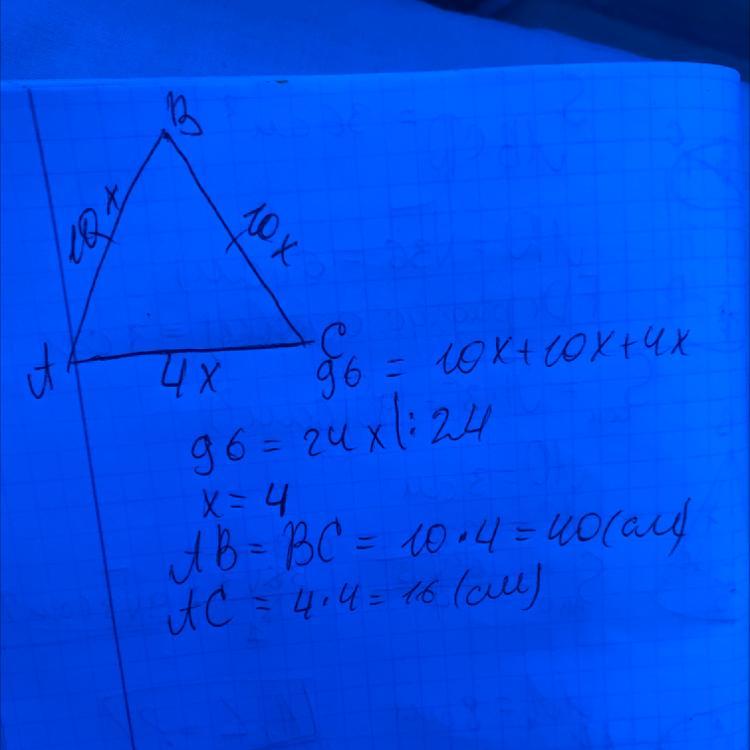 B
10x
10x
A
4x
C
96 = 10x+10x+4x
96 = 24x|:24
x = 4
AB = BC = 10·4 = 40(см)
AC = 4·4 = 16 (см)